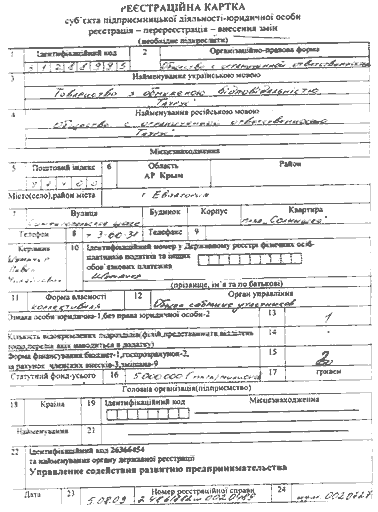 РЕЄСТРАЦІЙНА КАРТКА
суб`єкта підприємницької діяльності-юридичної особи
реєстрація – перереєстрація – внесення змін
(необхідне підкреслити)
1 Ідентифікаційний код 2 Організаційно-правова форма
Общество с ограниченной ответственностью
3 Найменування українською мовою
Товариство з обмеженою відповідальністю
4 Найменування російською мовою
Общество с ограниченной ответственностью
Місцезнаходження
5 Поштовий індекс 6 Область Район
АР Крым
Місто(село),район міста г. Евпатория
7 Вулиця Будинок Корпус Квартира
Телефон 8 3-00-31 Телефакс 9
Керівник 10 Ідентифікаційний номер у Державному реєстрі фізичних осіб-
платників податків та інших
обов`язкових платежів
(прізвище, ім`я та по батькові)
11 Форма власності 12 Орган управління
коллективная Общее собрание участников
Ознака особи юридичною-1,без права юридичної особи-2 13 1
Кількість відокремлених підрозділів(філій,представництв,відділень
тощо,перелік яких наводиться в додатку) 14
Форма фінансування:бюджет-1,госпрозрахунок-2,
за рахунок членських внесків-3,змішана-9 15 2
Статутний фонд-усього 16 5000000 17 гривен
Головна організація(підприємство)
18 Країна 19 Ідентифікаційний код Місцезнаходження
20 Найменування 21
22 Ідентифікаційний код 26366454
та найменування органу державної реєстрації
Управление содействия развитию предпринимательства
Дата 23 Номер реєстраційної справи 24